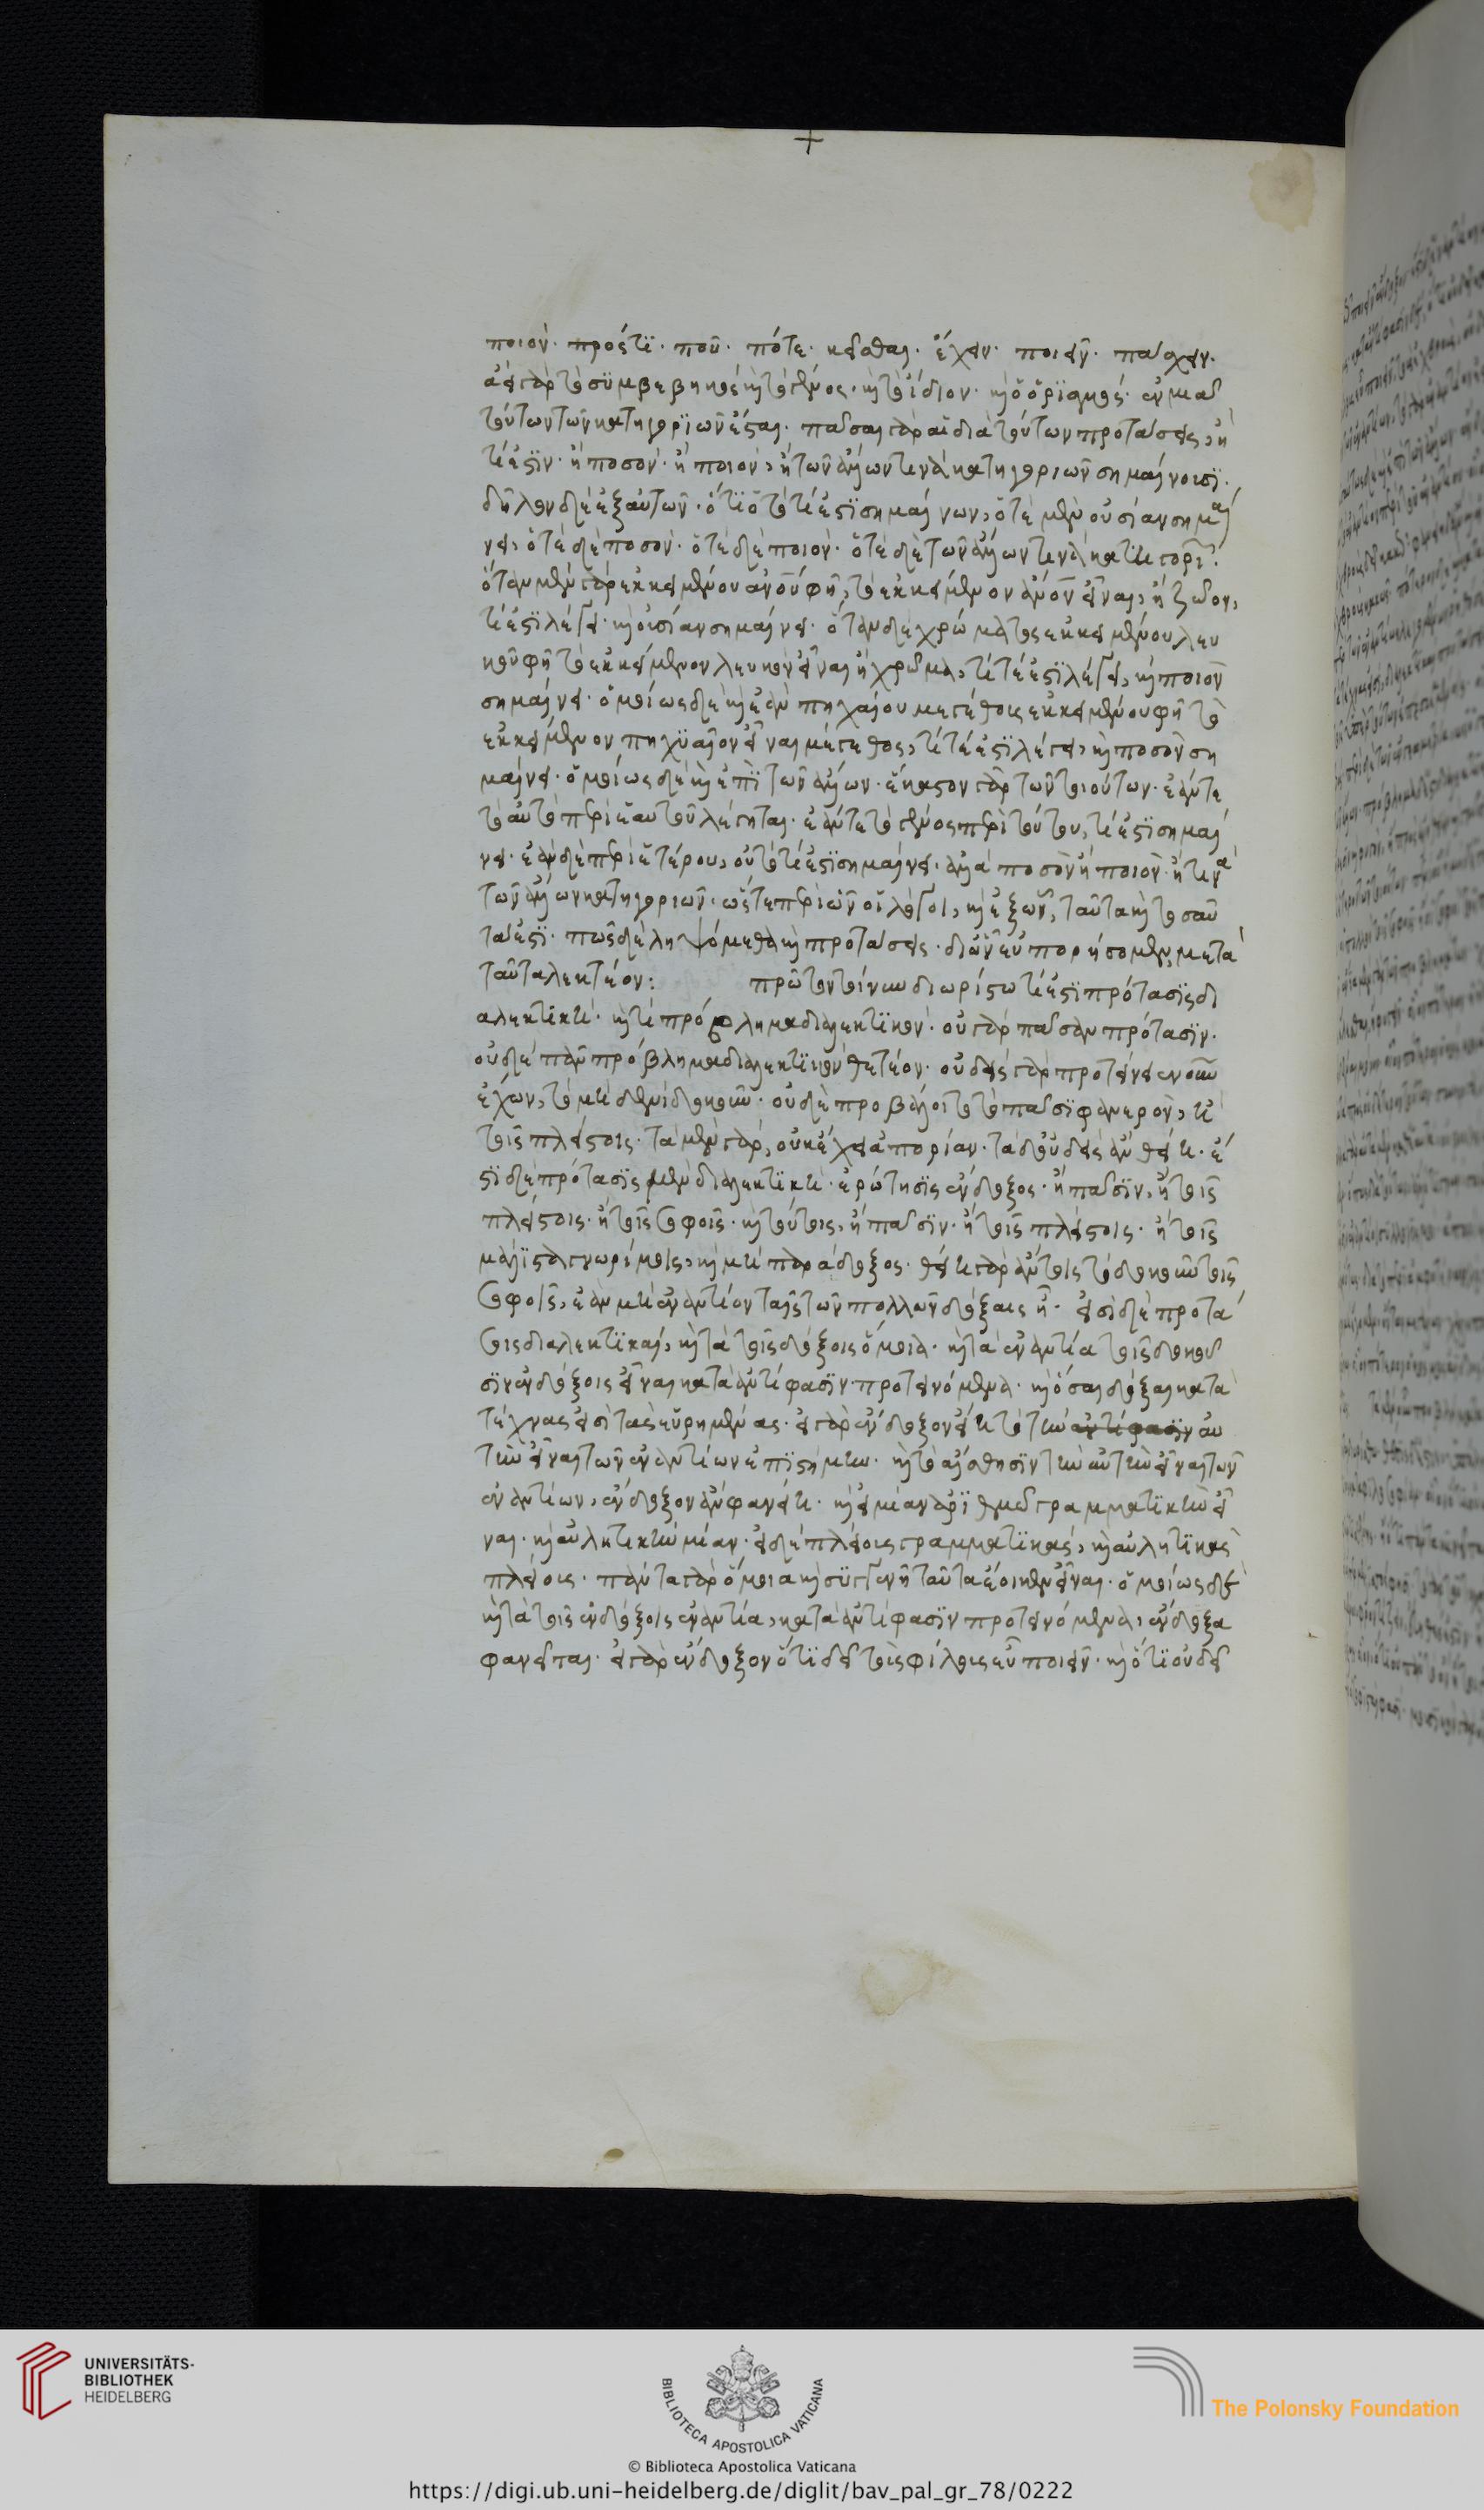 ποιὸν· πρός τϊ· ποῦ· πότε· κεῖσθαι· ἔχειν· ποιεῖν· πάσχειν·
ἀεὶ γὰρ τὸ συμβεβηκὸς καὶ τὸ γένος· καὶ τὸ ἴδιον· καὶ ὁ ὁρϊσμὸς· ἐν μιᾶ
τούτων τῶν κατηγορϊῶν ἔσται· πᾶσαι γὰρ αἱ διὰ τούτων προτάσεις, ἢ
τί ἐστϊν· ἢ ποσὸν· ἢ ποιὸν, ἢ τῶν ἄλλων τινὰ κατηγοριῶν σημαίνουσϊ·
δῆλον δὲ ἐξ αὐτῶν· ὅτϊ ὁ τὸ τί ἐστϊ σημαίνων, ὁτὲ μὲν οὐσίαν σημαί
νει, ὁτὲ δὲ ποσὸν· ὁτὲ δὲ ποιὸν· ὁτὲ δὲ τῶν ἄλλων τινὰ κατηγορϊῶν·
ὅταν μὲν γὰρ ἐκκειμένου ἀνοῦ φῆ, τὸ ἐκκείμενον ἄνον εἶναι, ἢ ζῶον,
τί ἐστϊ λέγει· καὶ οὐσίαν σημαίνει· ὅταν δὲ χρώματος ἐκκειμένου λευ
κοῦ φῆ τὸ ἐκκείμενον λευκὸν εἶναι ἢ χρῶμα, τί τέ ἐστϊ λέγει, καὶ ποιὸν
σημαίνει· ὁμοίως δὲ καὶ ἐὰν πηχαίου μεγέθους ἐκκειμένου φῆ τὸ
ἐκκείμενον πηχϋαῖον εἶναι μέγεθος, τί τέ ἐστϊ λέγει, καὶ ποσὸν ση
μαίνει· ὁμοίως δὲ καὶ ἐπὶ τῶν ἄλλων· ἕκαστον γὰρ τῶν τοιούτων· ἐάν τε
τὸ αὐτὸ περὶ ἑαυτοῦ λέγηται· ἐάν τε τὸ γένος περὶ τούτου, τί ἐστϊ σημαί
νει· ἐὰν δὲ περὶ ἑτέρου, οὐ τὸ τί ἐστϊ σημαίνει· ἀλλὰ ποσὸν ἢ ποιὸν ἤ τινα
τῶν ἄλλων κατηγοριῶν· ὥστε περὶ ὧν οἱ λόγοι, καὶ ἐξ ὧν, ταῦτα καὶ τοσαῦ
τά ἐστϊ· πῶς δὲ ληψόμεθα καὶ προτάσεις· δι᾽ ὧν εὐπορήσομεν, μετὰ
ταῦτα λεκτέον: πρῶτον τοίνυν διωρίστω τί ἐστϊ πρότασϊς δι
αλεκτϊκὴ· καὶ τί πρόβλημα διαλεκτϊκὸν· οὐ γὰρ πᾶσαν πρότασϊν·
οὐδὲ πᾶν πρόβλημα διαλεκτϊκὸν θετέον· οὐδεὶς γὰρ προτείνειε νοῦν
ἔχων, τὸ μηδενὶ δοκοῦν· οὐδὲ προβάλοι τὸ τὸ πᾶσϊ φανερὸν, ἢ
τοῖς πλείστοις· τὰ μὲν γὰρ, οὐκ ἔχει ἀπορίαν· τὰ δ᾽ οὐδεὶς ἂν θείη· ἔ
στϊ δὲ πρότασϊς μὲν διαλεκτϊκὴ· ἐρώτησϊς ἔνδοξος· ἢ πᾶσϊν, ἢ τοῖς
πλείστοις· ἢ τοῖς σοφοῖς· καὶ τούτοις, ἢ πᾶσϊν· ἢ τοῖς πλείστοις· ἢ τοῖς
μάλϊστα γνωρίμοις, καὶ μὴ παράδοξος· θείη γὰρ ἄν τις τὸ δοκοῦν τοῖς
σοφοῖς, ἐὰν μὴ ἐναντίον ταῖς τῶν πολλῶν δόξαις ἦ· εἰσὶ δὲ προτά
σεις διαλεκτϊκαὶ, καὶ τὰ τοῖς δόξοις ὅμοια· καὶ τὰ ἐναντία τοῖς δοκοῦ
σϊν ἐνδόξοις εἶναι κατὰ ἀντίφασϊν προτεινόμενα· καὶ ὅσαι δόξαι κατὰ
τέχνας εἰσὶ τὰς εὑρημένας· εἰ γὰρ ἔνδοξον εἴη τὸ τὴν ἀντίφασϊν αὐ
τὴν εἶναι τῶν ἐναντίων ἐπϊστήμην· καὶ τὸ αἴσθησϊν τὴν αὐτὴν εἶναι τῶν
ἐναντίων, ἔνδοξον ἂν φανείη· καὶ εἰ μίαν ἀρϊθμῶ γραμματϊκὴν εἶ
ναι· καὶ αὐλητϊκὴν μίαν· εἰ δὲ πλείους γραμματϊκὰς, καὶ αὐλητϊκὰς
πλείους· πάντα γὰρ ὅμοια καὶ συγγενῆ ταῦτα ἔοικεν εἶναι· ὁμοίως δὲ
καὶ τὰ τοῖς ἐνδόξοις ἐναντία, κατὰ ἀντίφασϊν προτεινόμενα, ἔνδοξα
φανεῖται· εἰ γὰρ ἔνδοξον ὅτϊ δεῖ τοὺς φίλους εὖ ποιεῖν· καὶ ὅτϊ οὐ δεῖ
UNIVERSITÄTS-
BIBLIOTHEK
HEIDELBERG
BIBLIOTECA APOSTOLICA VATICANA
The Polonsky Foundation
© Biblioteca Apostolica Vaticana
https://digi.ub.uni-heidelberg.de/diglit/bav_pal_gr_78/0222